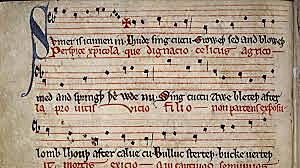 Svmer is icumen in· Lhude sing cuccu· Groweþ sed and bloweþ
Perspice xp̄icola que dignacio celicus agrico
med and springþ þe wde nu· Sing cuccu Awe bleteþ after
la pro uitis uicio filio non parcens exposu
lomb lhouþ after calue cu· Bulluc sterteþ· bucke uerteþ
it mortis exicio